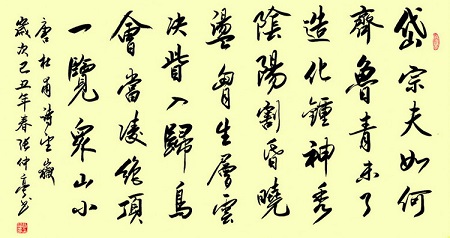 岱宗夫如何
齊魯青未了
造化鍾神秀
陰陽割昏曉
盪胷生層雲
决眥入歸鳥
會當凌絶頂
一覽衆山小
唐杜甫詩望嶽
歲次己丑年春張仲亭书